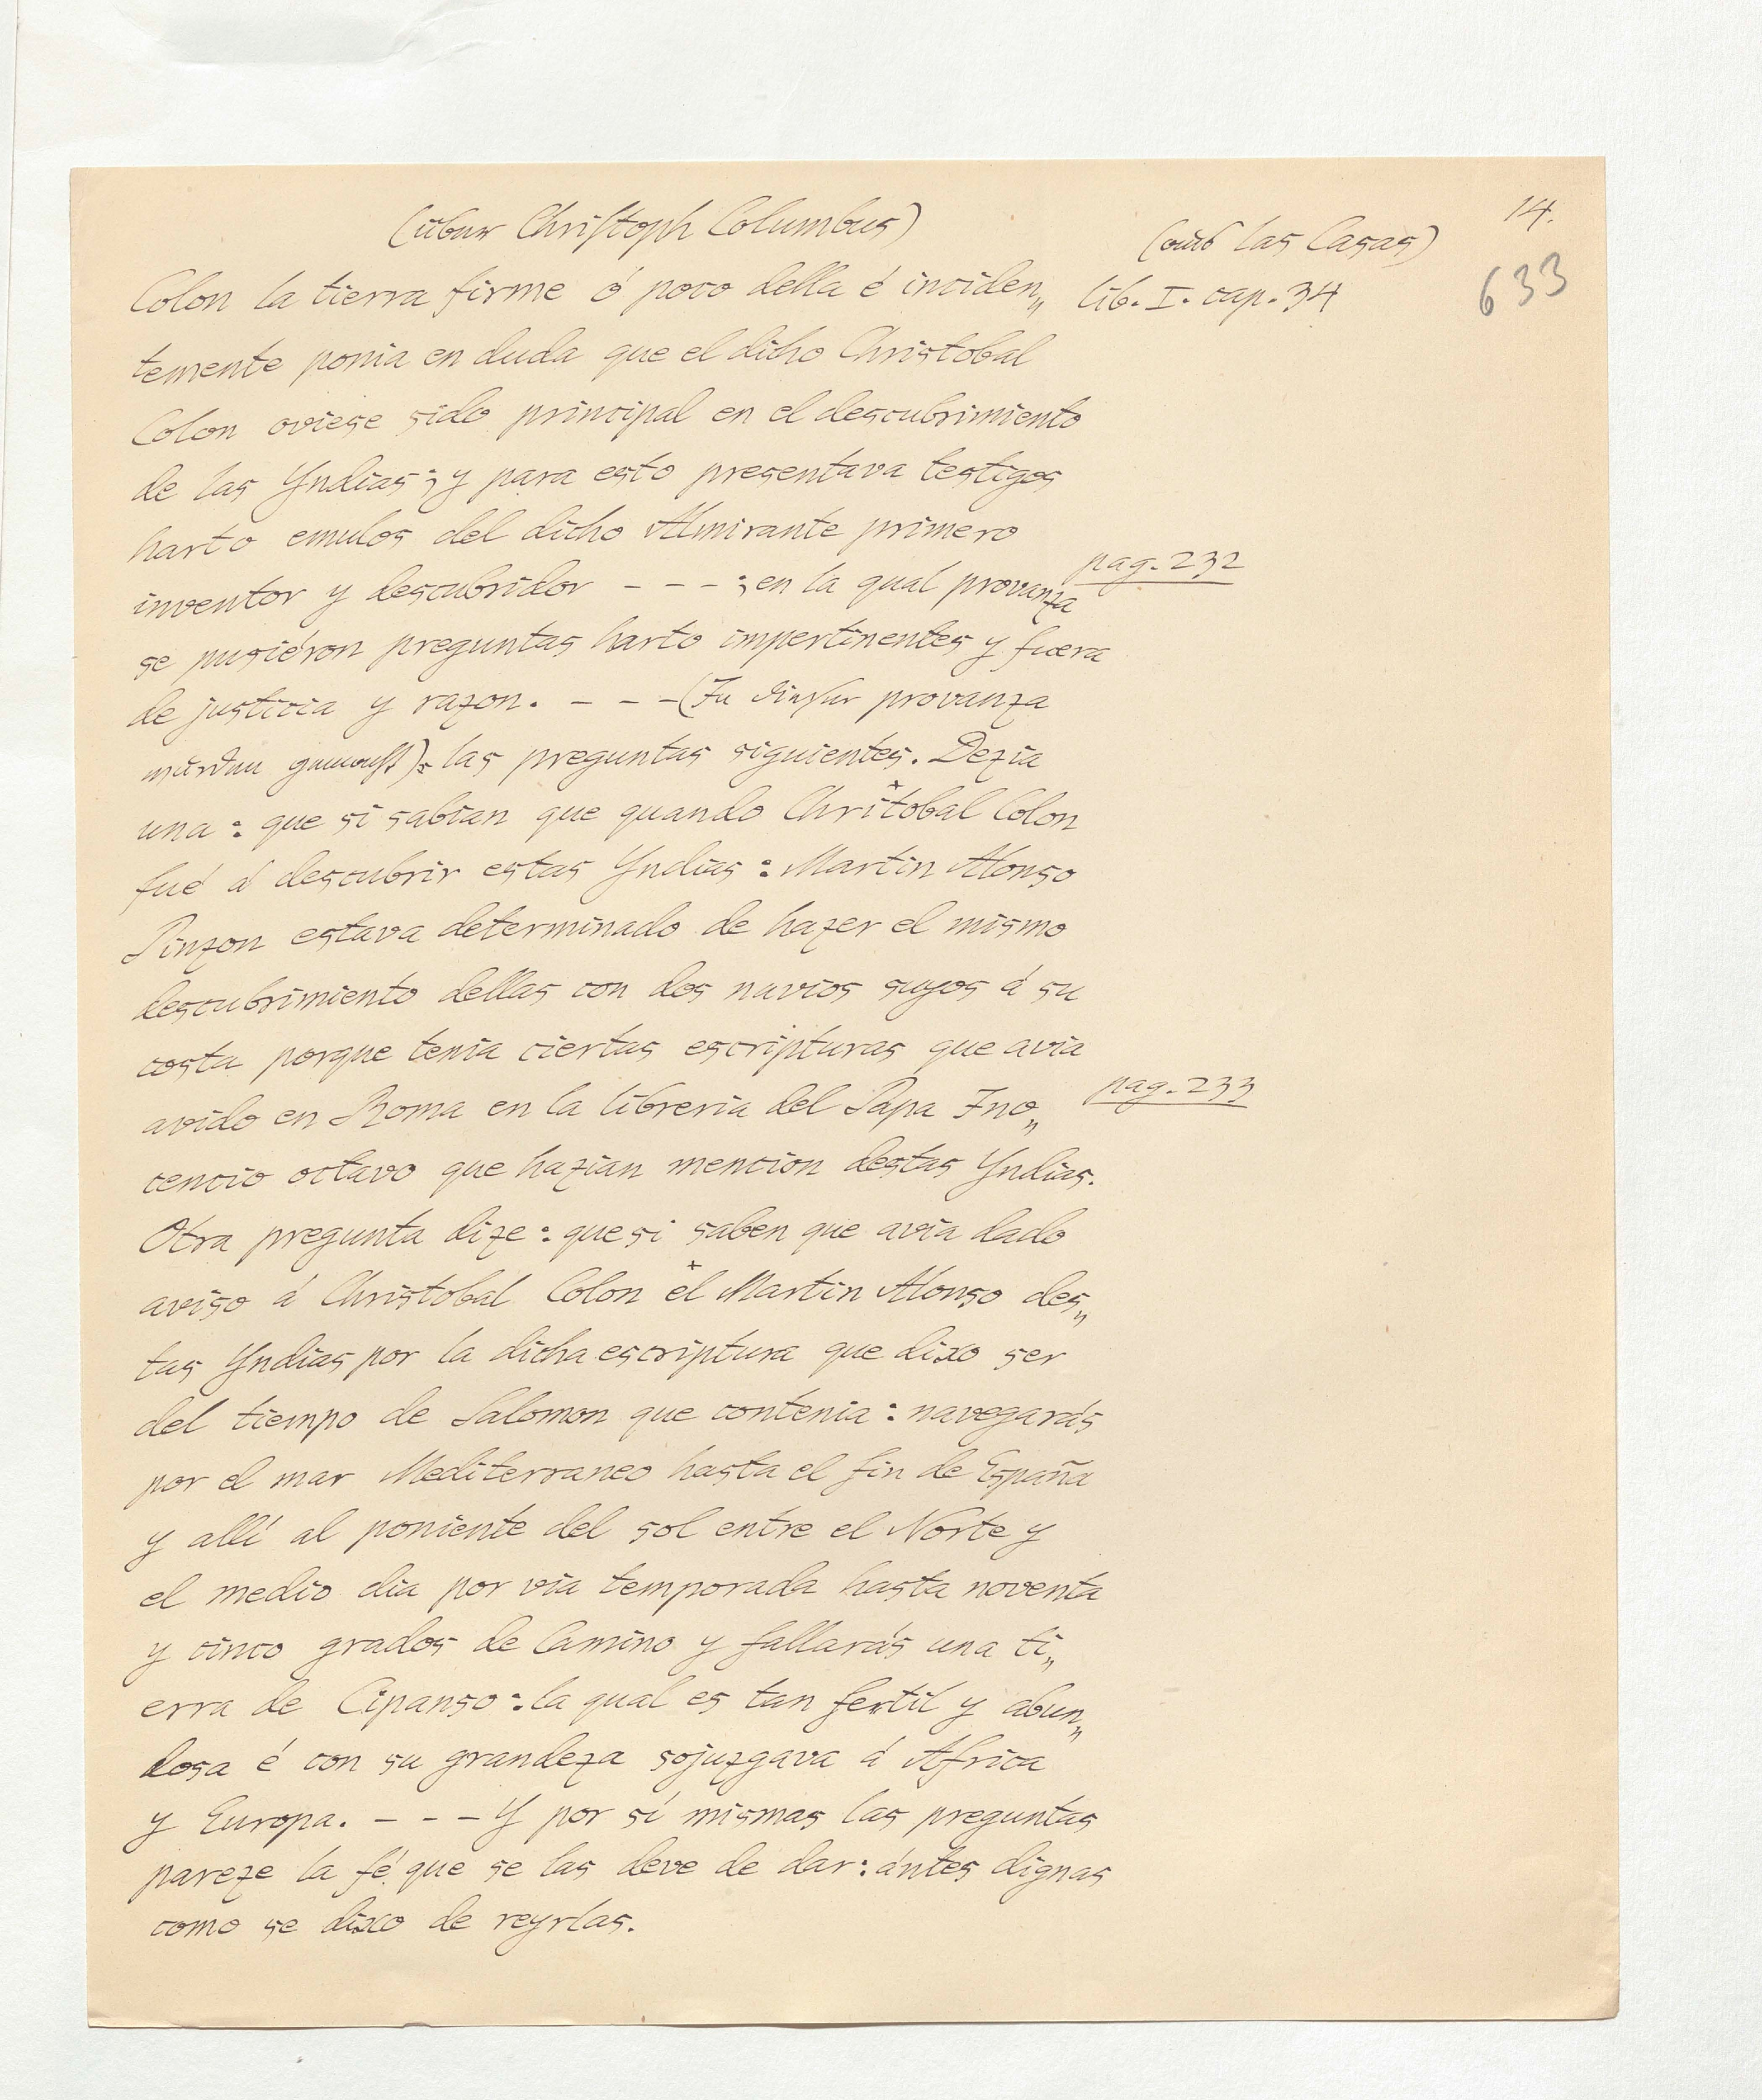 14.
(über Christoph Columbus)
(aus las Casas)
633
Colon la tierra firme ó poco della é inciden„
lib. I. cap. 34
temente ponia en duda que el dicho Christobal
Colon oviese sido principal en el descubrimiento
de las Yndias; y para esto presentava testigos
harto emulos del dicho Almirante primero
pag. 232
inventor y descubridor - - - ; en la qual provanza
se pusiéron preguntas harto impertinentes y fuera
de justicia y razon. - - - (In dieser provanza
wurden gemacht): las preguntas siguientes. Dezia
una: que si sabian que quando Chritobal Colon
fué á descubrir estas Yndias: Martin Alonso
Pinzon estava determinado de hazer el mismo
descubrimiento dellas con dos navios suyos á su
costa porque tenia ciertas escripturas que avia
pag. 233
avido en Roma en la libreria del Papa Ino„
cencio octavo que hazian mencion destas Yndias.
Otra pregunta dize: que si saben que avia dado
aviso á Christobal Colon el Martin Alonso des„
tas Yndias por la dicha escriptura que dixo ser
del tiempo de Salomon que contenia: navegarás
por el mar Mediterraneo hasta el fin de España
y allí al poniente del sol entre el Norte y
el medio dia por via temporada hasta noventa
y cinco grados de Camino y fallarás una ti„
erra de Cipanso: la qual es tan fertil y abun„
dosa é con su grandeza sojuzgava á Africa
y Europa. - - - Y por sí mismas las preguntas
pareze la fé que se las deve de dar: ántes dignas
como se dixo de reyrlas.